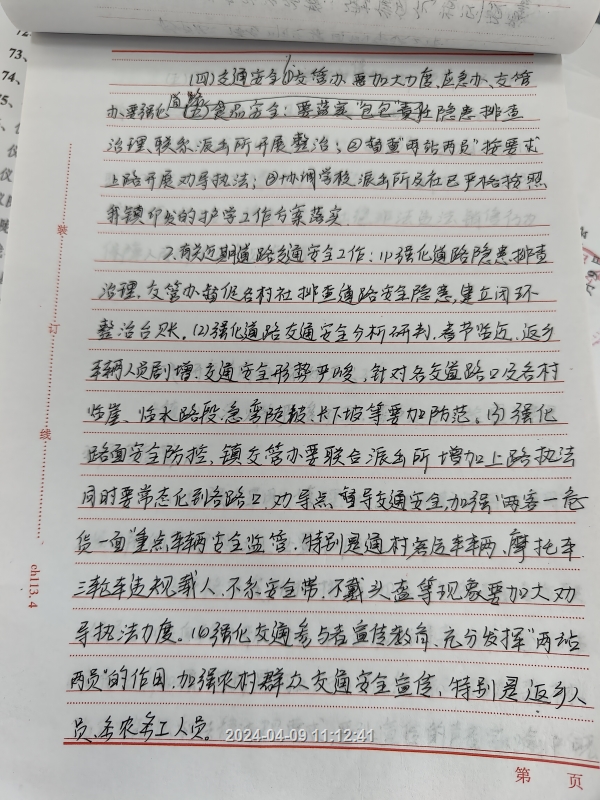 73、
74、
75、
(四)交通安全①交管办要加大力度,应急办、交管
办要强化道路(五)食品安全:要落实"包包"责任隐患排查
治理,联系派出所开展整治;②督查"两站两员"按要求
上路开展劝导执法;③协调学校,派出所及社已严格按照
我镇印发的护学工作方案落实.
2.有关近期道路交通安全工作:(1)强化道路隐患排查
治理.交管办督促各村社排查道路安全隐患,建立闭环
整治台账.(2)强化道路交通安全分析研判.春节临近,返乡
车辆人员剧增,交通安全形势严峻,针对各交道路口及各村
临崖、临水路段,急弯陡坡、长下坡等要加防范。(3)强化
路面安全防控,镇交管办要联合派出所增加上路执法
同时要常态化到各路口、劝导点,督导交通安全,加强"两客一危
货一面"重点车辆安全监管.特别是通村客运车辆、摩托车
三轮车违规载人、不系安全带、不戴头盔等现象要加大劝
导执法力度。(4)强化交通参与者宣传教育,充分发挥"两站
两员"的作用,加强农村群众交通安全宣传,特别是返乡人
员、务农务工人员。
装
订
线
ch113.4
2024-04-09 11:12:41
第 页